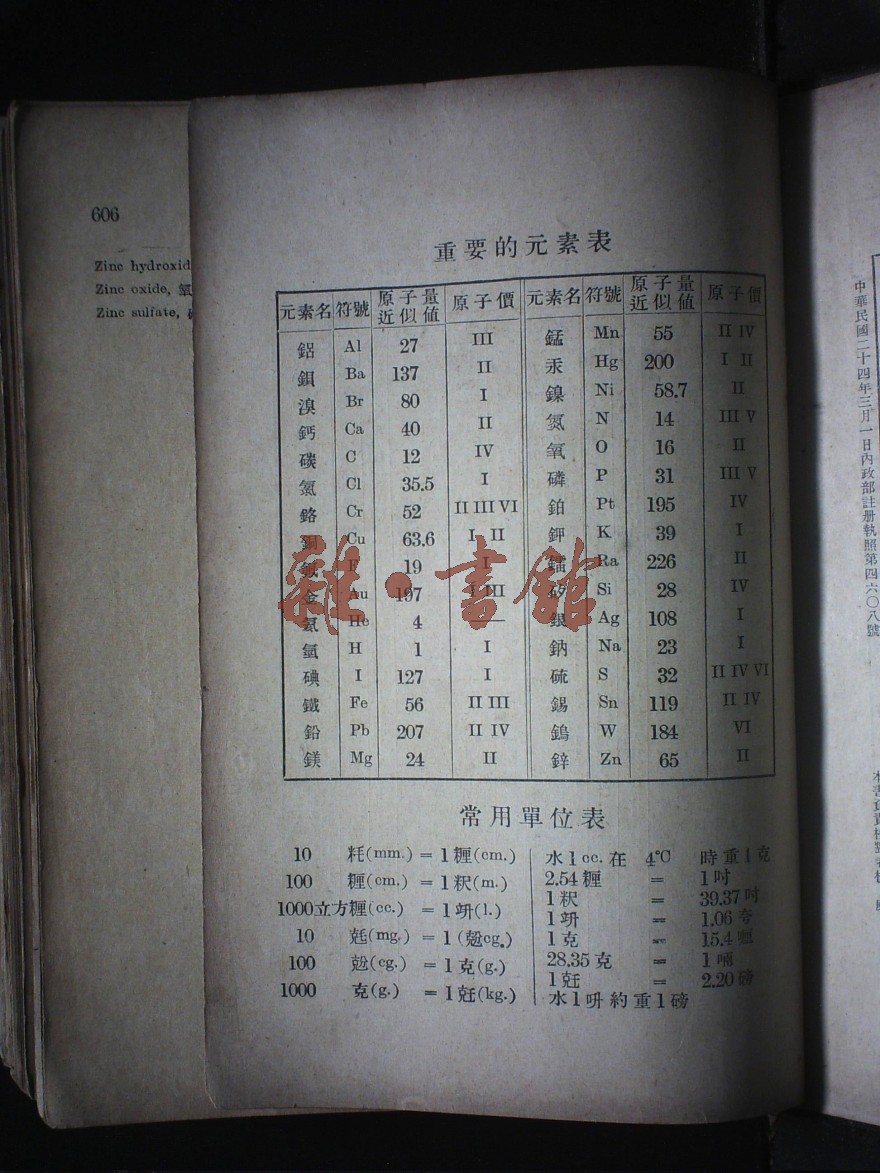 606
Zinc hydroxid
Zinc oxide, 氧
Zinc sulfate,
重要的元素表
元素名 符號 原子量近似值 原子價 元素名 符號 原子量近似值 原子價
鋁 Al 27 III 錳 Mn 55 II IV
鋇 Ba 137 II 汞 Hg 200 I II
溴 Br 80 I 鎳 Ni 58.7 II
鈣 Ca 40 II 氮 N 14 III V
碳 C 12 IV 氧 O 16 II
氯 Cl 35.5 I 磷 P 31 III V
鉻 Cr 52 II III VI 鉑 Pt 195 IV
銅 Cu 63.6 I II 鉀 K 39 I
氟 F 19 I 鐳 Ra 226 II
金 Au 197 I III 矽 Si 28 IV
氦 He 4 — 銀 Ag 108 I
氫 H 1 I 鈉 Na 23 I
碘 I 127 I 硫 S 32 II IV VI
鐵 Fe 56 II III 錫 Sn 119 II IV
鉛 Pb 207 II IV 鎢 W 184 VI
鎂 Mg 24 II 鋅 Zn 65 II
雜·書館
常用單位表
10 粍(mm.) = 1糎(cm.)
100 糎(cm.) = 1籵(m.)
1000立方糎(cc.) = 1竔(l.)
10 兞(mg.) = 1(兡cg.)
100 兡(cg.) = 1克(g.)
1000 克(g.) = 1兛(kg.)
水1cc.在 4°C 時重1克
2.54糎 = 1吋
1籵 = 39.37吋
1竔 = 1.06夸
1克 = 15.4
28.35克 = 1啢
1兛 = 2.20磅
水1呏約重1磅
中華民國二十四年三月一日內政部註册執照第四六〇八號